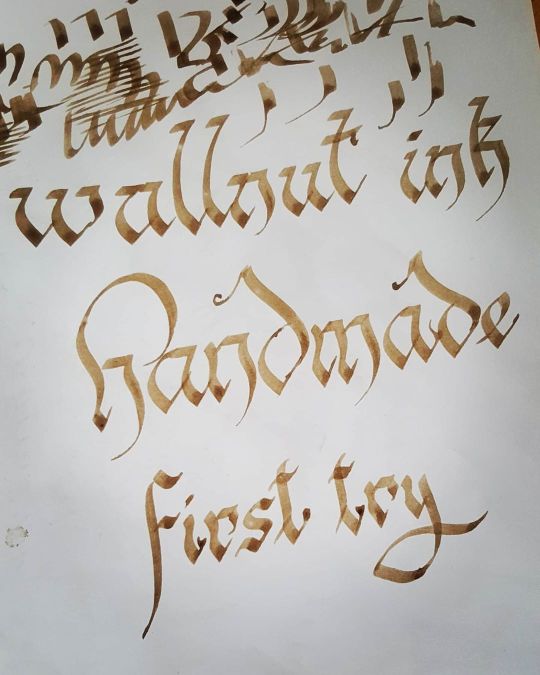 wallnut ink
Handmade
first try